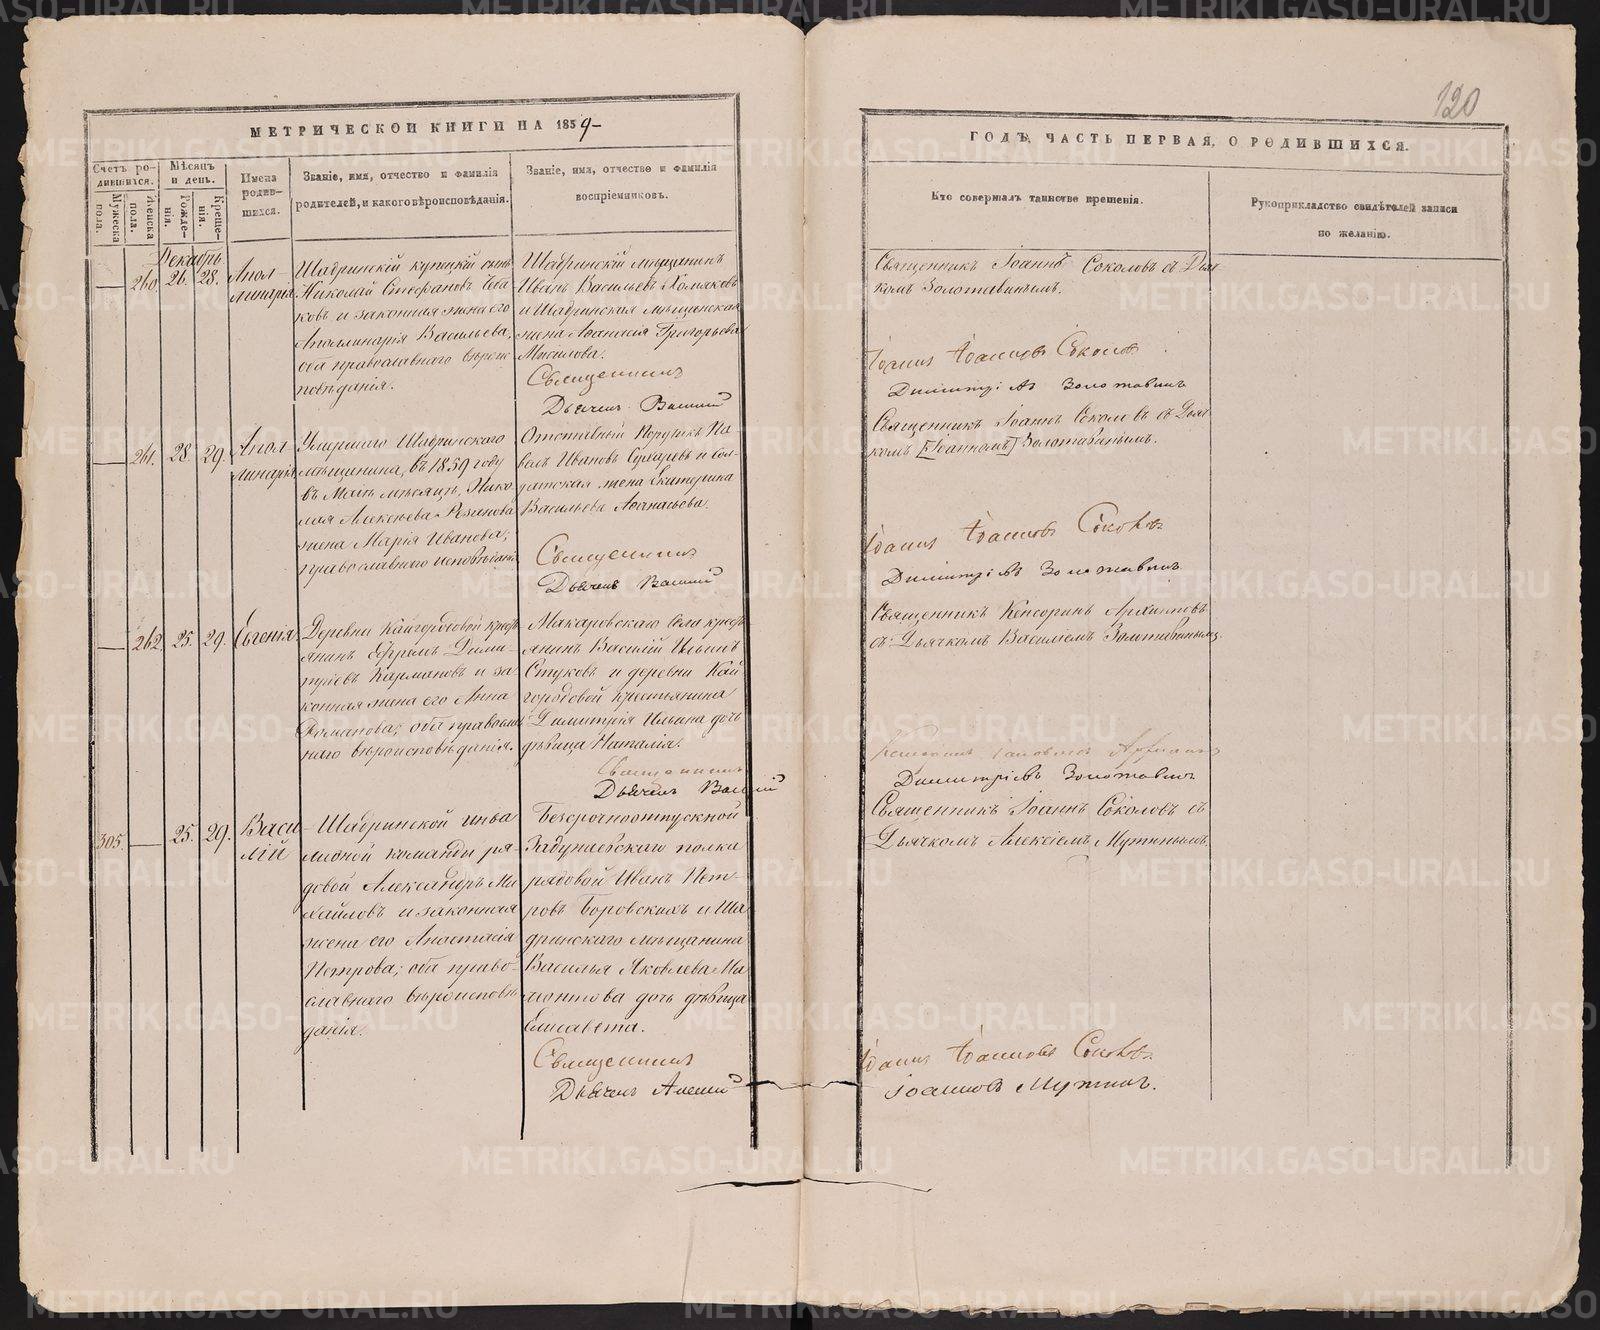 120
МЕТРИЧЕСКОЙ КНИГИ НА 1859
ГОДЪ, ЧАСТЬ ПЕРВАЯ, О РОДИВШИХСЯ.
Счетъ ро-
дившихся.
Мужеска
пола.
Женска
пола.
Мѣсяцъ
и день.
Рожде-
нія.
Креще-
нія.
Имена
родив-
шихся.
Званіе, имя, отчество и фамилія
родителей, и какого вѣроисповѣданія.
Званіе, имя, отчество и фамилія
воспріемниковъ.
Кто совершалъ таинство крещенія.
Рукоприкладство свидѣтелей записи
по желанію.
Декабрь
260. 26. 28.
Апол-
линарія
Шадринскій купецкій сынъ
Николай Стефановъ
ковъ и законная жена его
Аполлинарія Васильева,
оба православнаго вѣроис-
повѣданія.
Шадринскій мѣщанинъ
Иванъ Васильевъ Хомяковъ
и Шадринская мѣщанская
жена Афанасія Григорьева
Мисилова.
Священникъ
Дьячекъ Василій
Священникъ Іоаннъ Соколовъ съ Дья-
комъ Золотавинымъ.
Іоаннъ Іоанновъ Соколовъ
Димитріевъ Золотавинъ
261. 28. 29.
Апол-
линарія
Умершаго Шадринскаго
мѣщанина, въ 1859 году
въ Маѣ мѣсяцѣ, Нико-
лая Алексѣева Рязанова
жена Марія Иванова,
православнаго исповѣданія
Отставный Поручикъ Па-
велъ Ивановъ Сухаревъ и сол-
датская жена Екатерина
Васильева Афанасьева.
Священникъ
Дьячекъ Василій
Священникъ Іоаннъ Соколовъ съ Дья-
комъ [Іоанномъ] Золотавинымъ.
Іоаннъ Іоанновъ Соколовъ
Димитріевъ Золотавинъ
262. 25. 29.
Евгенія
Деревни Кайгородовой крест-
янинъ Ефремъ Дими-
тріевъ Кармановъ и за-
конная жена его Анна
Романова; оба православ-
наго вѣроисповѣданія.
Макаровскаго села крест-
янинъ Василій Ильинъ
Стуковъ и деревни Кай-
городовой крестьянина
Димитрія Ильина дочь
дѣвица Наталія.
Священникъ
Дьячекъ Василій
Священникъ Кенсоринъ
съ Дьячкомъ Василіемъ Золотавинымъ
Димитріевъ Золотавинъ
305. 25. 29.
Васи-
лій
Шадринской инва-
лидной команды ря-
довой Александръ Ми-
хайловъ и законная
жена его Анастасія
Петрова; оба право-
славнаго вѣроисповѣ-
данія.
Безсрочноотпускной
Задунаевскаго полка
рядовой Иванъ Пет-
ровъ Боровскихъ и Ша-
дринскаго мѣщанина
Василья Яковлева Ма-
монтова дочь дѣвица
Елисавета.
Священникъ
Дьячекъ Алексій
Священникъ Іоаннъ Соколовъ съ
Дьячкомъ Алексіемъ Мутинымъ.
Іоаннъ Іоанновъ Соколовъ
Іоанновъ Мутинъ.
METRIKI.GASO-URAL.RU